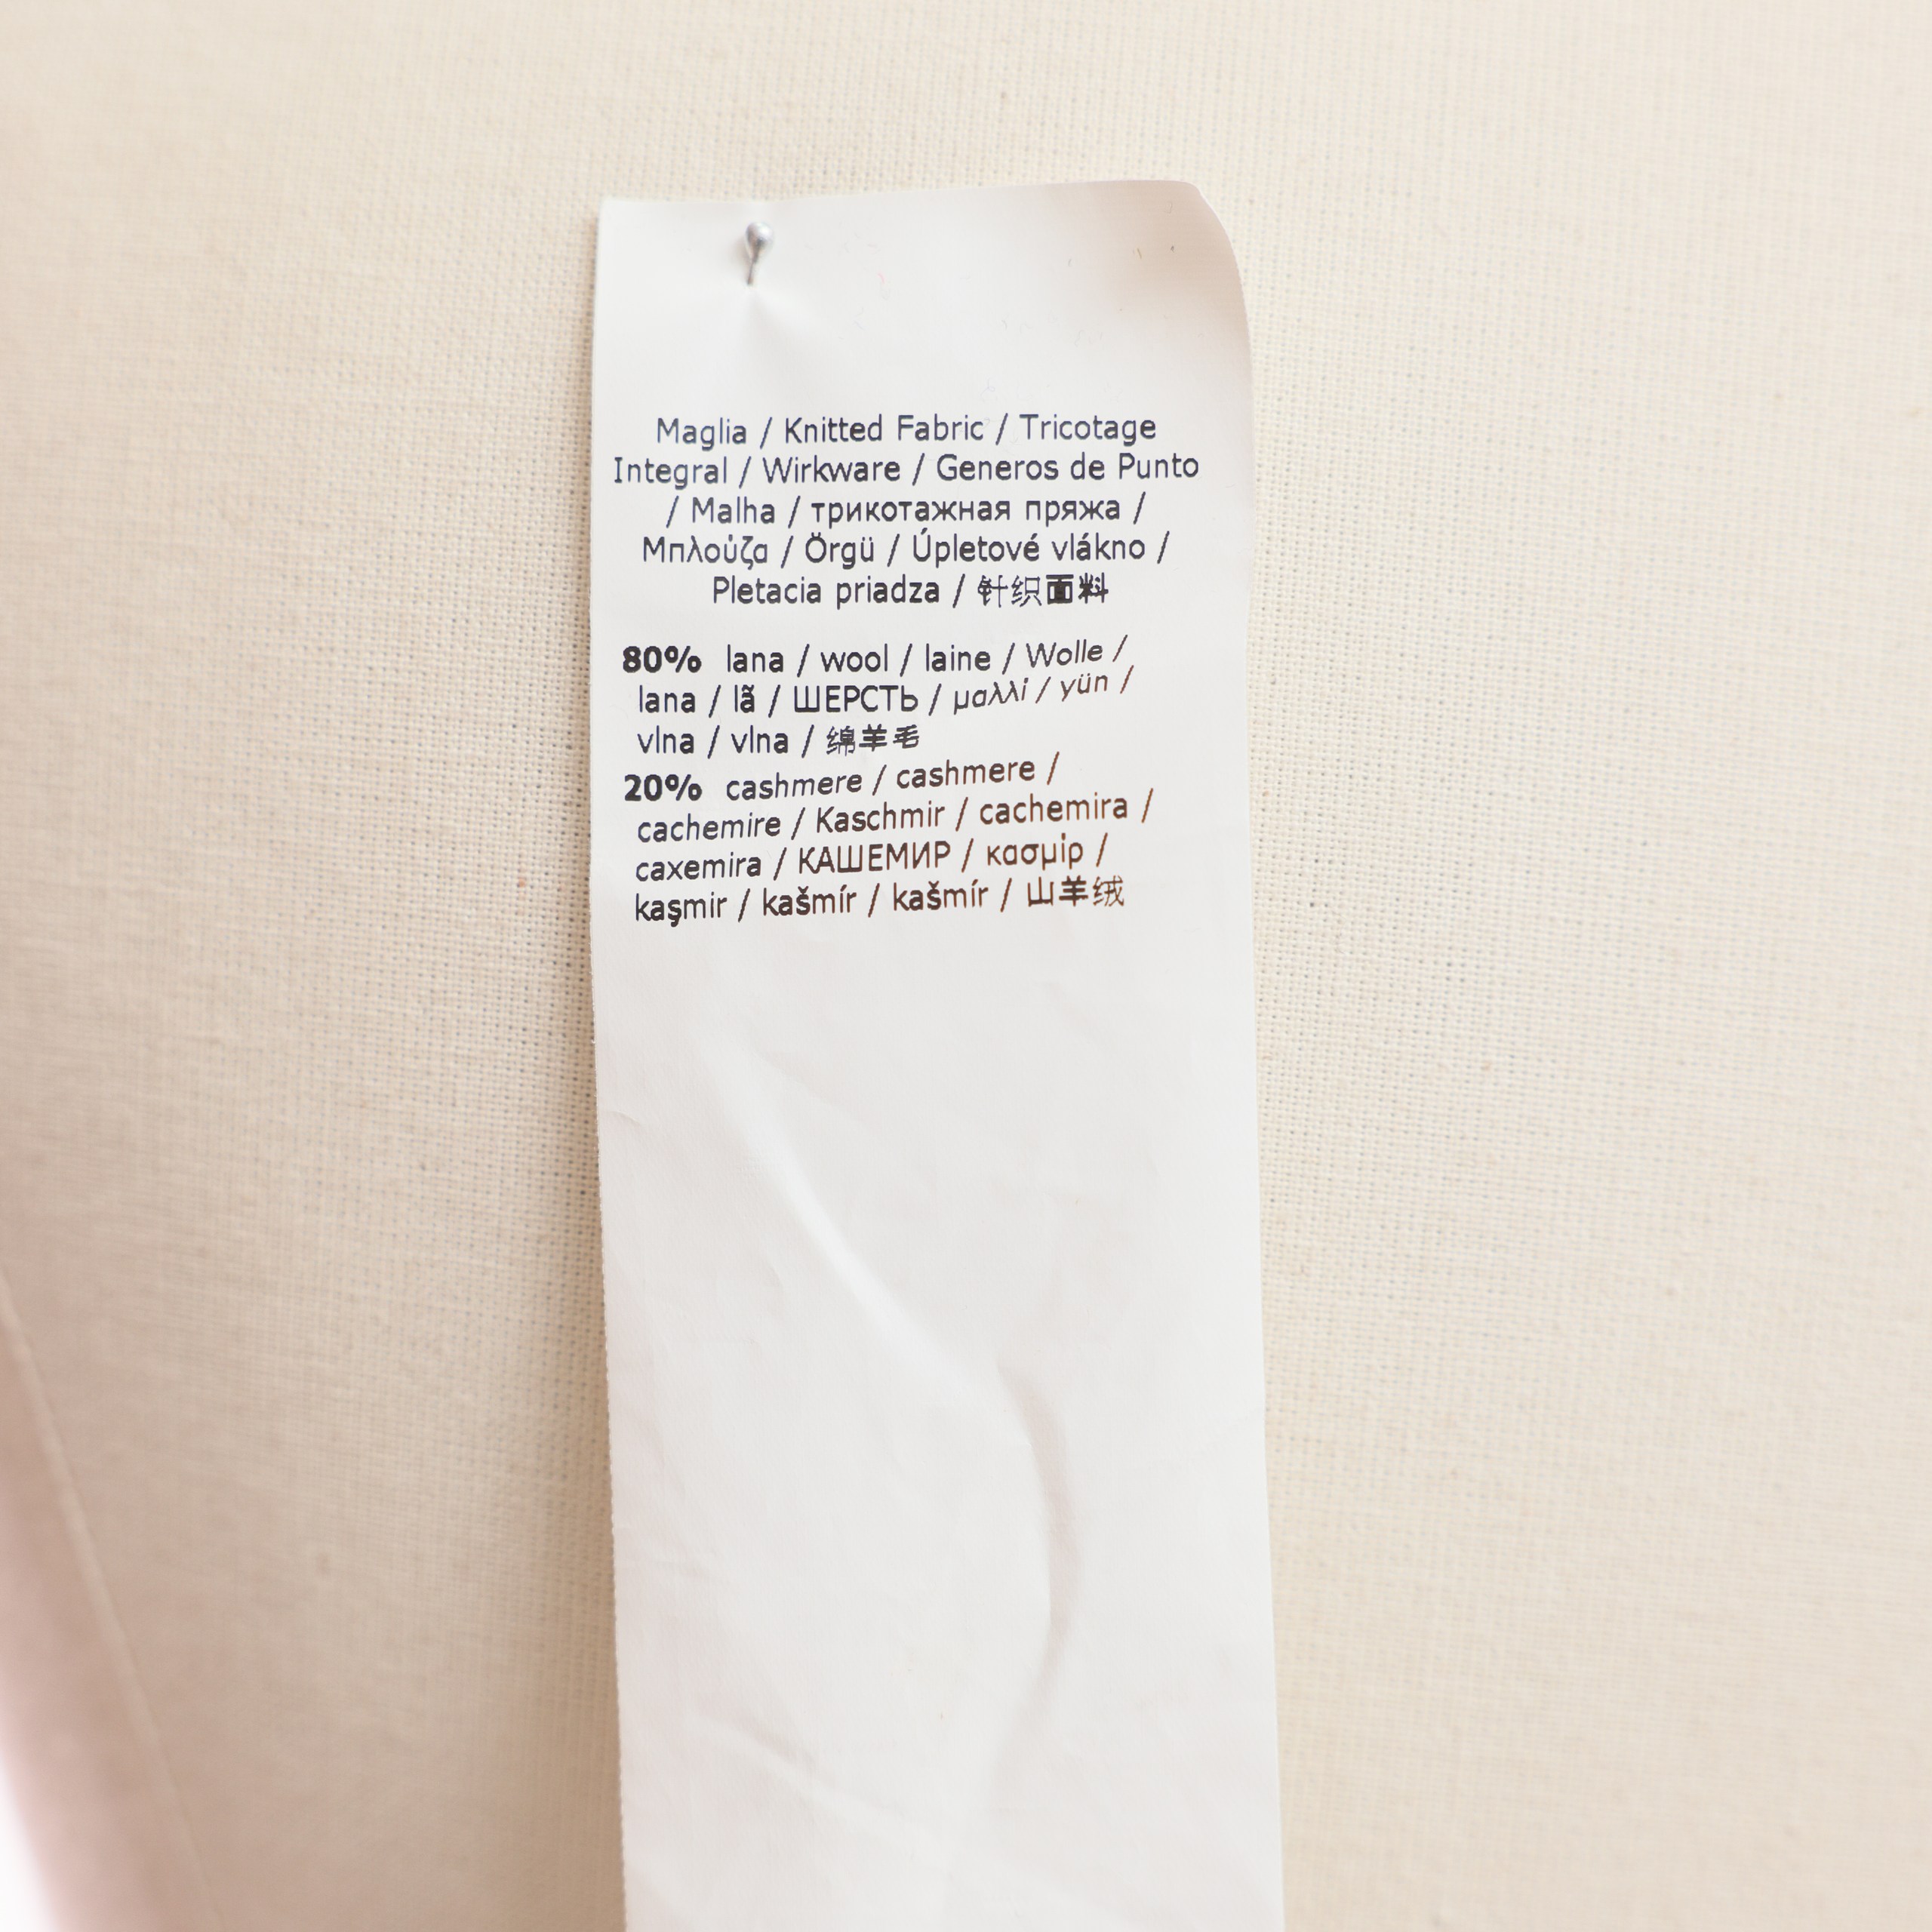 Maglia / Knitted Fabric / Tricotage
Integral / Wirkware / Generos de Punto
/ Malha / трикотажная пряжа /
Μπλούζα / Örgü / Úpletové vlákno /
Pletacia priadza / 针织面料
80% lana / wool / laine / Wolle /
lana / lã / ШЕРСТЬ / μαλλί / yün /
vlna / vlna / 绵羊毛
20% cashmere / cashmere /
cachemire / Kaschmir / cachemira /
caxemira / КАШЕМИР / κασμίρ /
kaşmir / kašmír / kašmír / 山羊绒